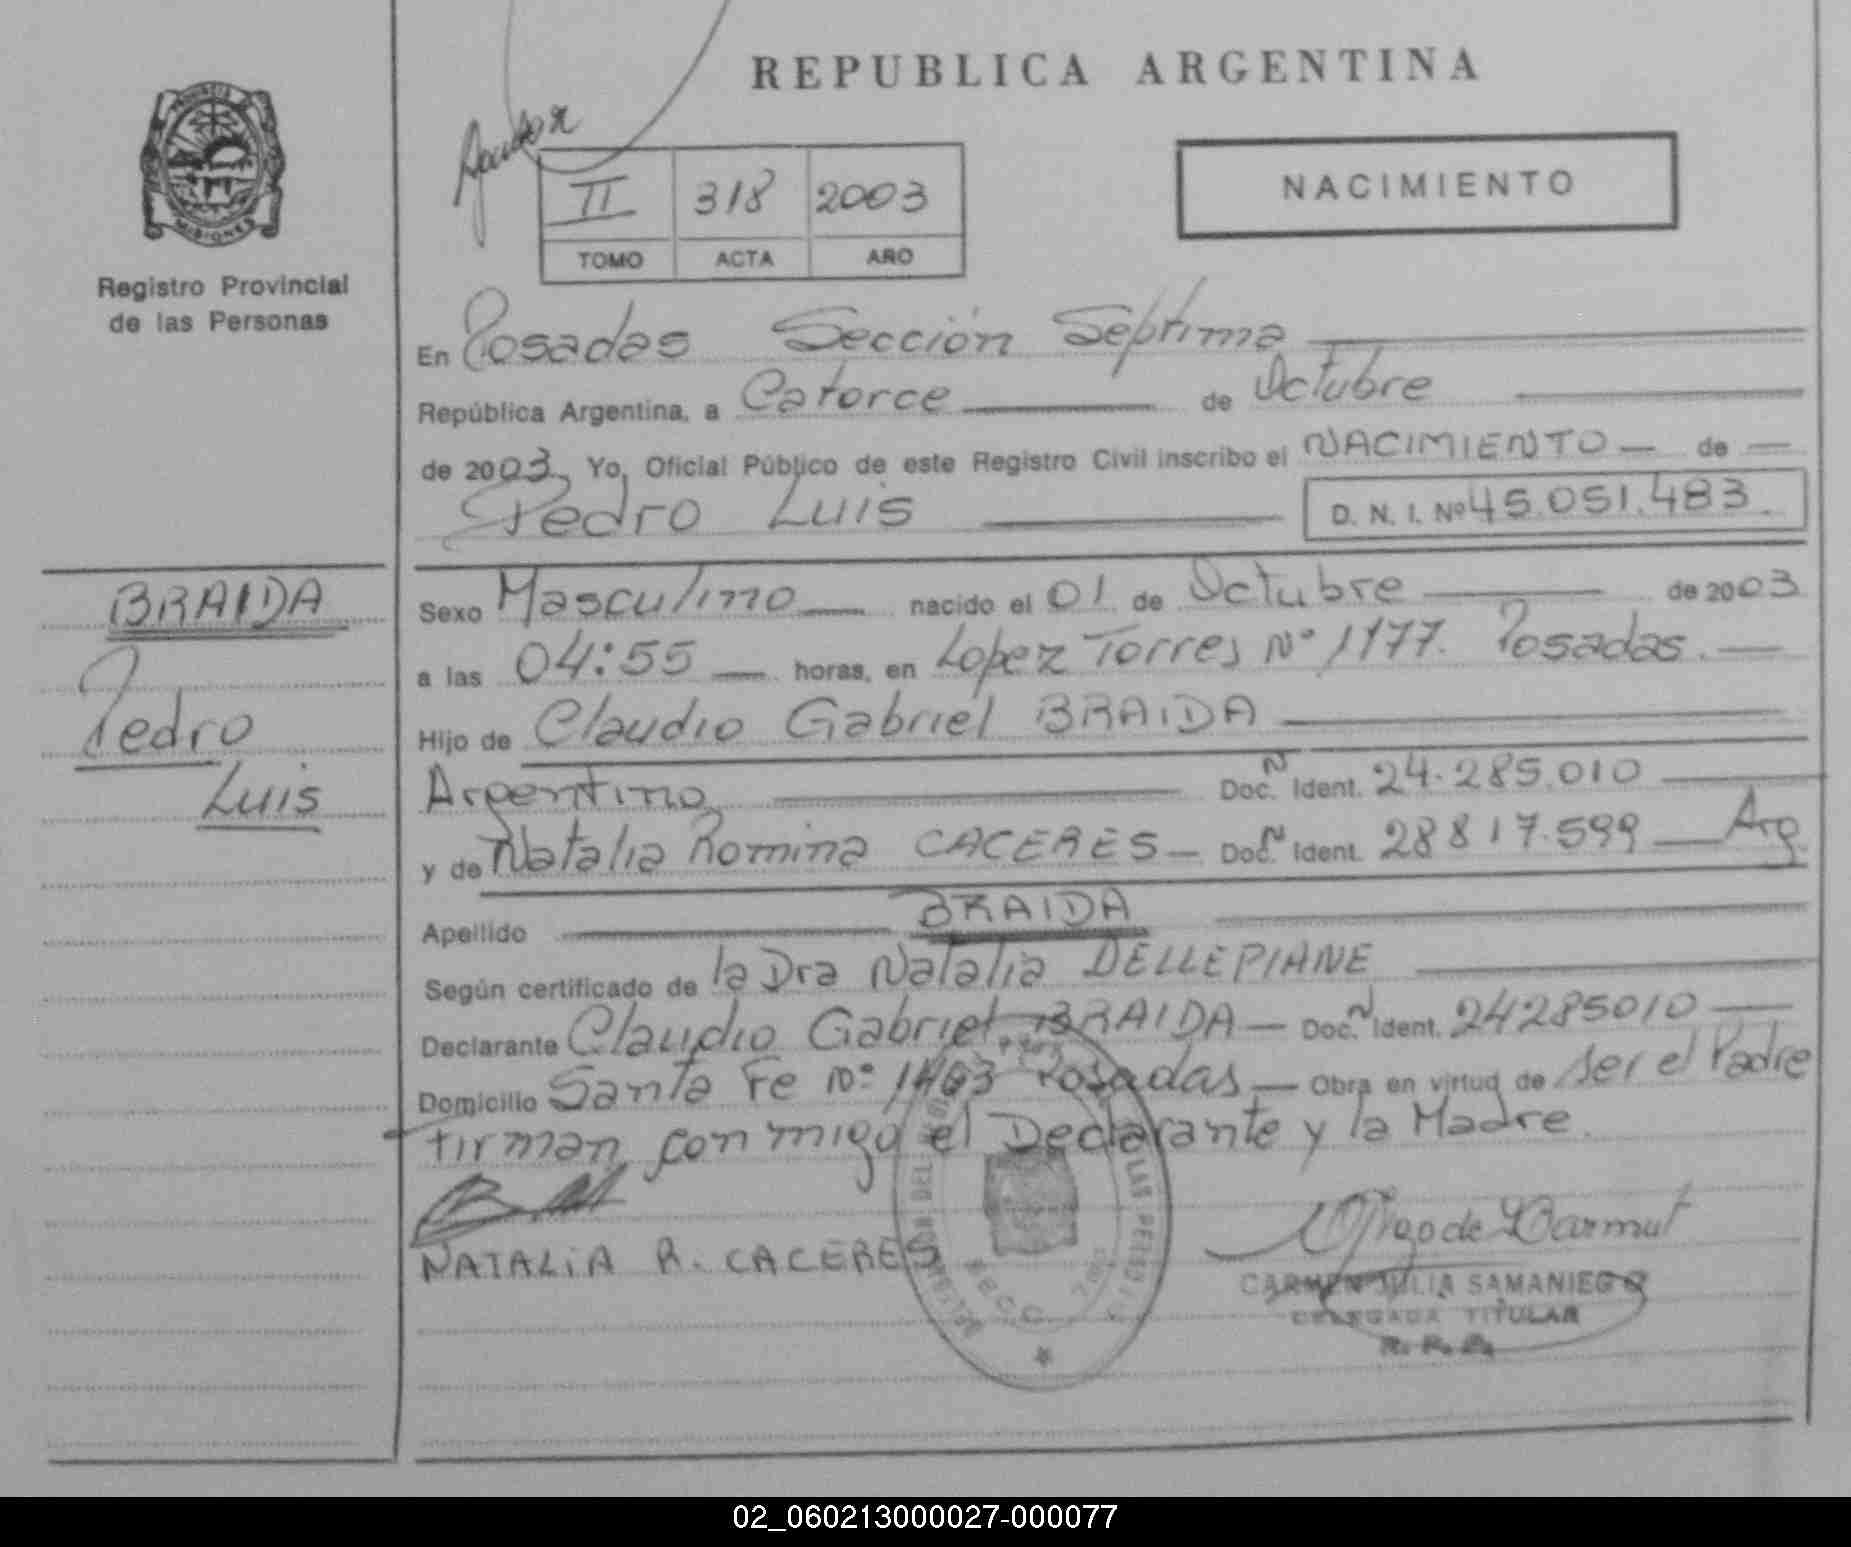 REPUBLICA ARGENTINA
PROVINCIA DE
MISIONES
Registro Provincial
de las Personas
II 318 2003
TOMO ACTA AÑO
NACIMIENTO
En Posadas Sección Septima
República Argentina, a Catorce de Octubre
de 2003, Yo, Oficial Público de este Registro Civil inscribo el NACIMIENTO de
Pedro Luis D. N. I. Nº 45.051.483.
BRAIDA
Pedro
Luis
Sexo Masculino nacido el 01 de Octubre de 2003
a las 04:55 horas, en Lopez Torres Nº 1177. Posadas.
Hijo de Claudio Gabriel BRAIDA
Argentino Doc. N Ident. 24.285.010
y de Natalia Romina CACERES Doc. N Ident. 28817.599 Arg.
Apellido BRAIDA
Según certificado de la Dra Natalia DELLEPIANE
Declarante Claudio Gabriel BRAIDA Doc. N Ident. 24285010
Domicilio Santa Fe Nº Posadas Obra en virtud de ser el Padre
firman conmigo el Declarante y la Madre.
NATALIA R. CACERES
CARMEN JULIA SAMANIEGO
DELEGADA TITULAR
R. P. P.
02_060213000027-000077